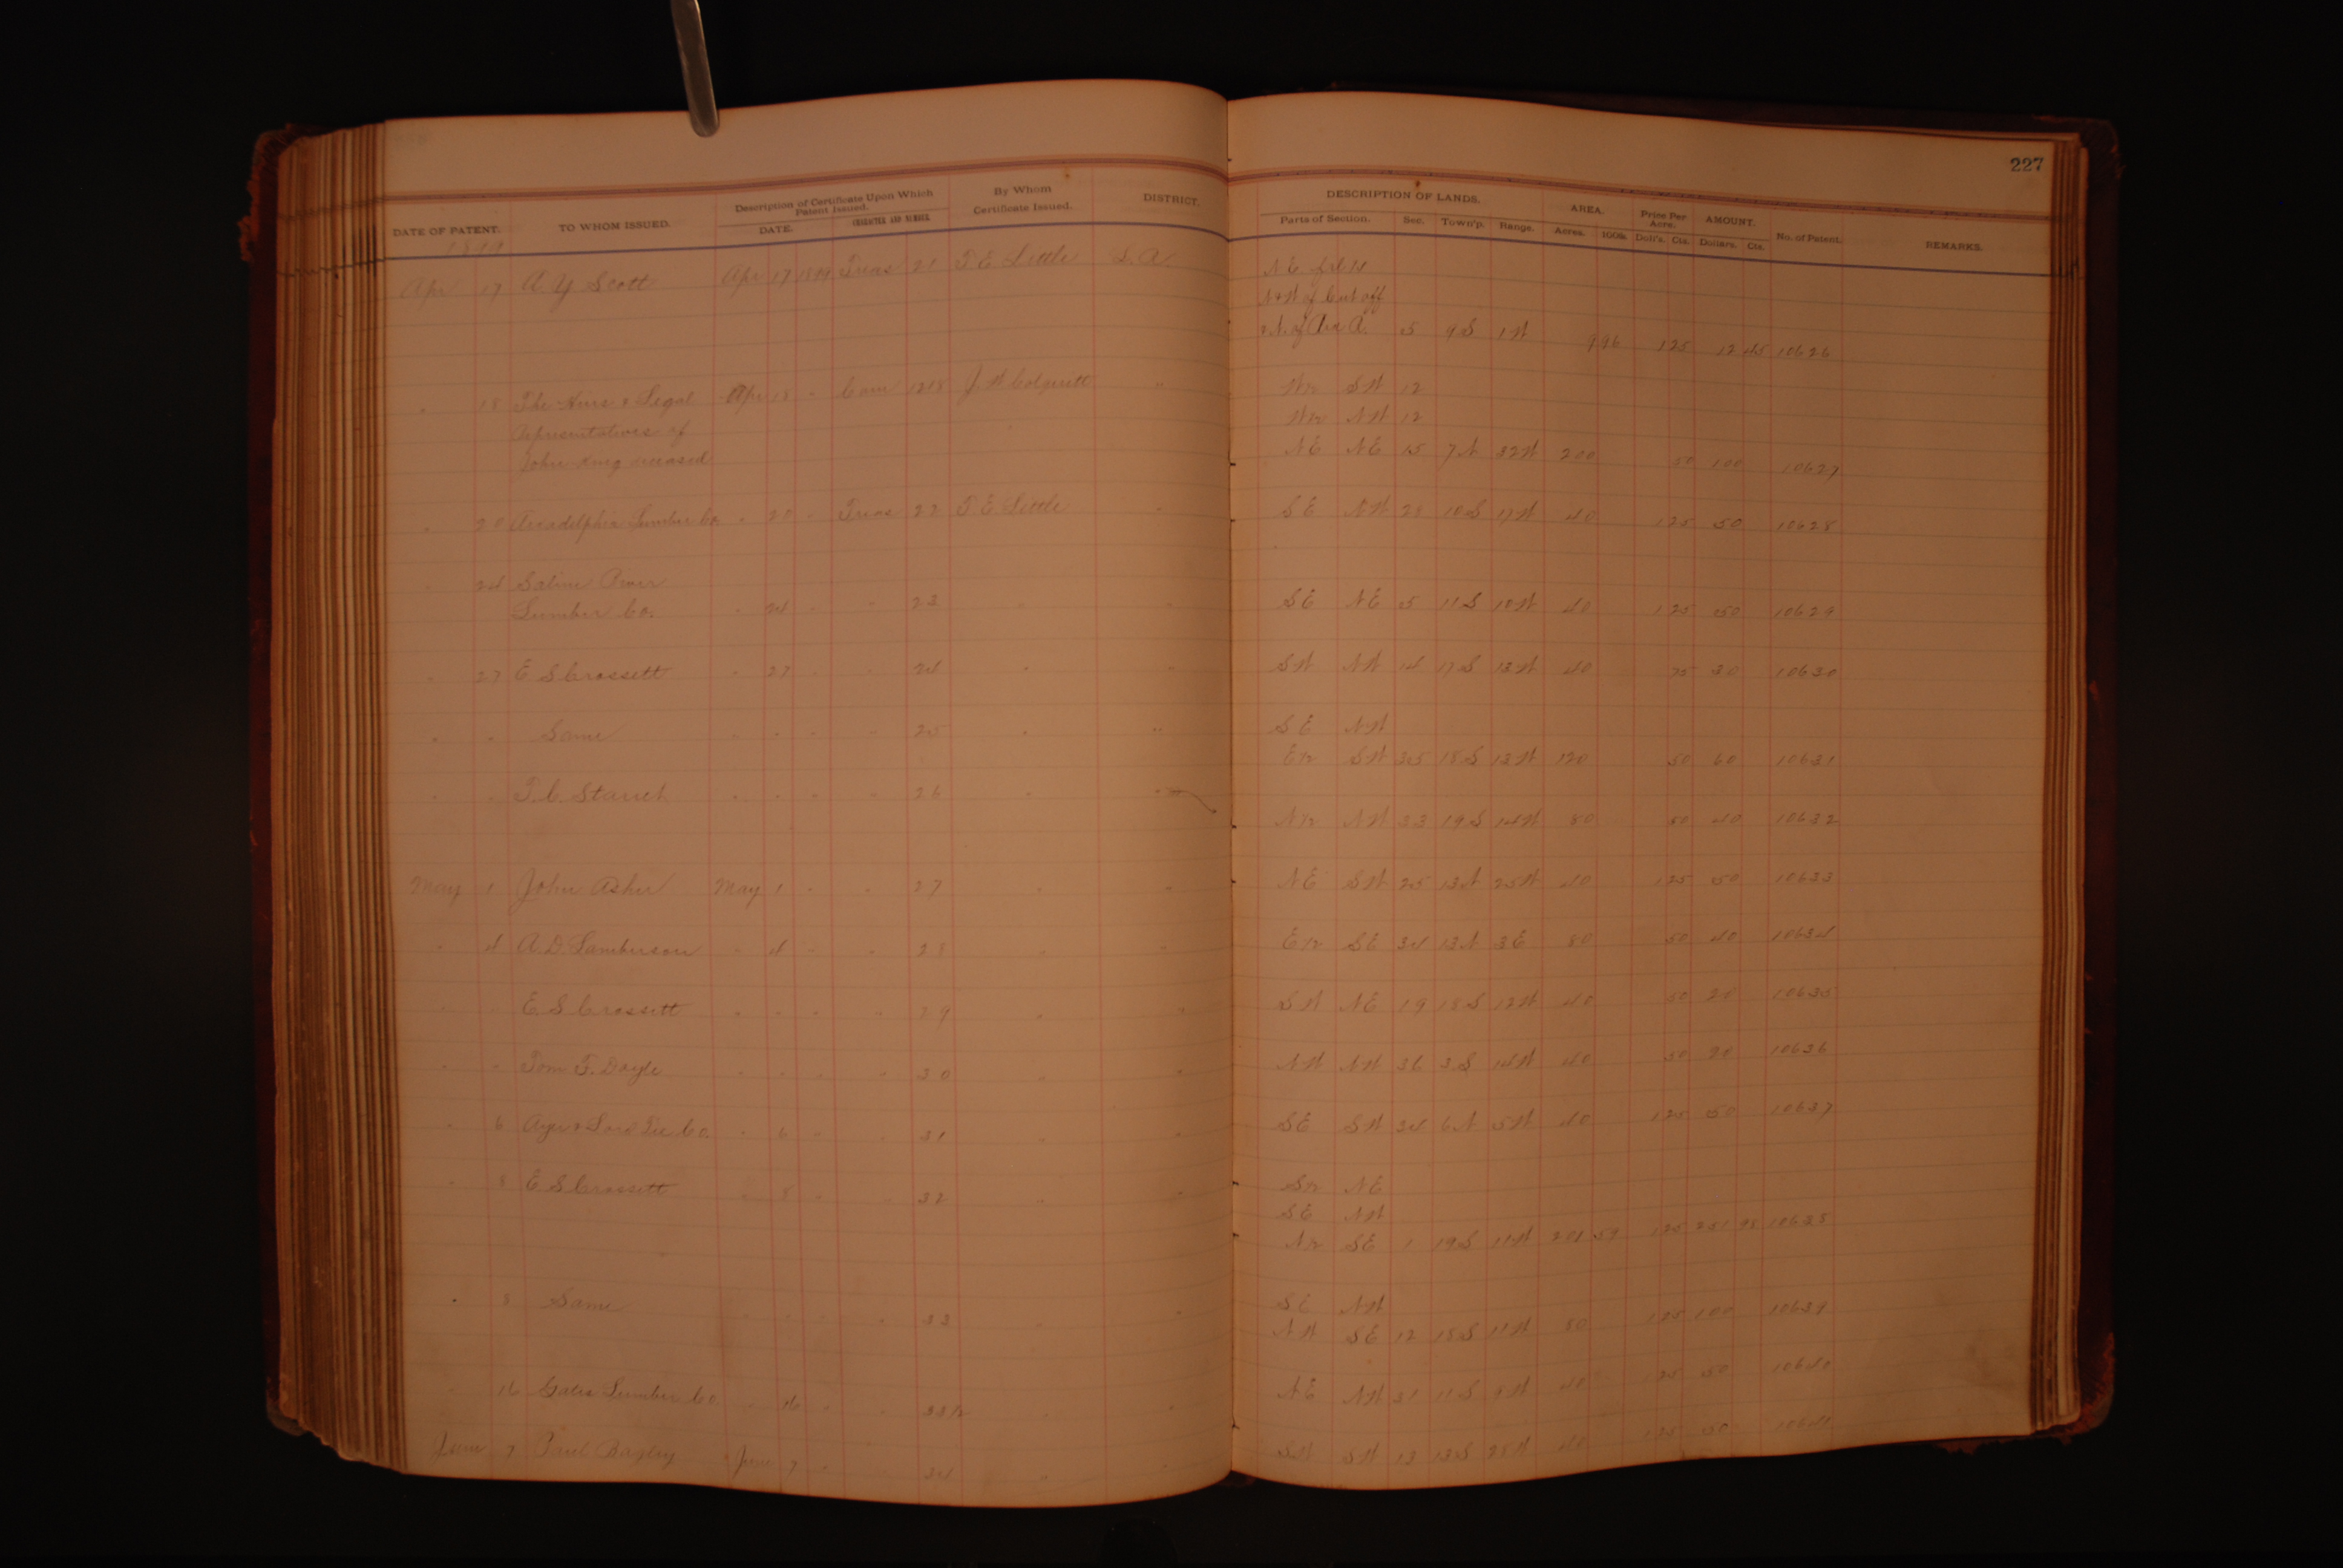 227
DATE OF PATENT. TO WHOM ISSUED. Description of Certificate Upon Which Patent Issued. DATE. CHARACTER AND NUMBER By Whom Certificate Issued. DISTRICT. DESCRIPTION OF LANDS. Parts of Section. Sec. Town'p. Range. AREA. Acres. 100s. Price Per Acre. Doll's. Cts. AMOUNT. Dollars. Cts. No. of Patent. REMARKS.
1899
Apr 17 A. Y Scott Apr 17 1899 Treas 21 T. E. Little L. R. N E frl
N & W of Cut off
& N. of 5 9S 1W 9 96 1 25 12 45 10626
" 18 The Heirs & Legal Apr 18 " Com 1218 J. W Colquitt " W½ SW 12
Representatives of W½ NW 12
John King deceased NE NE 15 7N 32W 200 50 100 10627
" 20 Arcadelphia Lumber Co. " 20 " Treas 22 T E Little " SE NW 28 10S 17W 40 1 25 50 10628
" 24 Saline River
Lumber Co. " 24 " " 23 " " SE NE 5 11S 10W 40 1 25 50 10629
" 27 E S Crossett " 27 " " 24 " " SW NW 14 17S 13W 40 75 30 10630
" " Same " " " " 25 " " SE NW
E½ SW 35 18S 13W 120 50 60 10631
" " T. C. " " " " 26 " " N½ NW 33 19S 14W 80 50 40 10632
May 1 John Asher May 1 " " 27 " " NE SW 25 13N 25W 40 1 25 50 10633
" 4 A. D. Lamberson " 4 " " 28 " " E½ SE 34 13N 3E 80 50 40 10634
" " E. S Crossett " " " " 29 " " SW NE 19 18S 12W 40 50 20 10635
" " Tom F. Doyle " " " " 30 " " NW NW 36 3S 14W 40 50 20 10636
" 6 Ayer & Lord Tie Co. " 6 " " 31 " " SE SW 34 6N 5W 40 1 25 50 10637
" 8 E S Crossett " 8 " " 32 " " S½ NE
SE NW
N½ SE 1 19S 11W 201 59 1 25 251 98 10638
" 8 Same " " " " 33 " " SE NW
NW SE 12 18S 11W 80 1 25 100 10639
" 16 Gates Lumber Co " 16 " " 33½ " " NE NW 31 11S 9W 40 1 25 50 10640
June 7 Paul Bagley June 7 " " 34 " " SW SW 13 13S 28W 40 1 25 50 10641